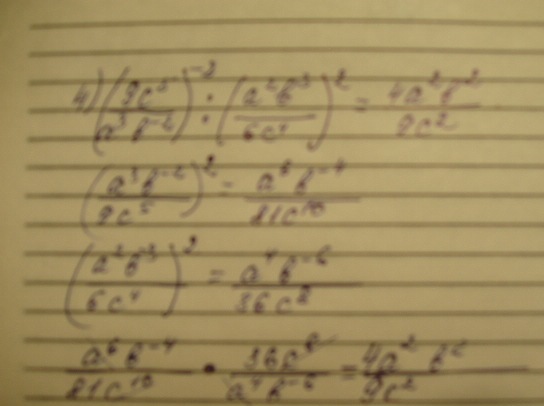 4) (9c⁵/a³b⁻²)⁻² : (a²b⁻³/6c⁴)² = 4a²b²/9c²
(a³b⁻²/9c⁵)² = a⁶b⁻⁴/81c¹⁰
(a²b⁻³/6c⁴)² = a⁴b⁻⁶/36c⁸
a⁶b⁻⁴/81c¹⁰ • 36c⁸/a⁴b⁻⁶ = 4a²b²/9c²